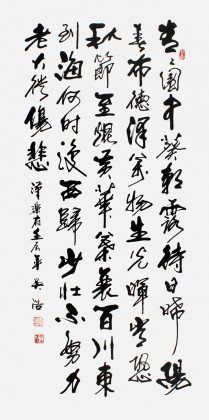 青々園中葵朝露待日晞陽
春布德澤萬物生光暉常恐
秋節至焜黃華葉衰百川東
到海何時復西歸少壯不努力
老大徒傷悲 漢樂府